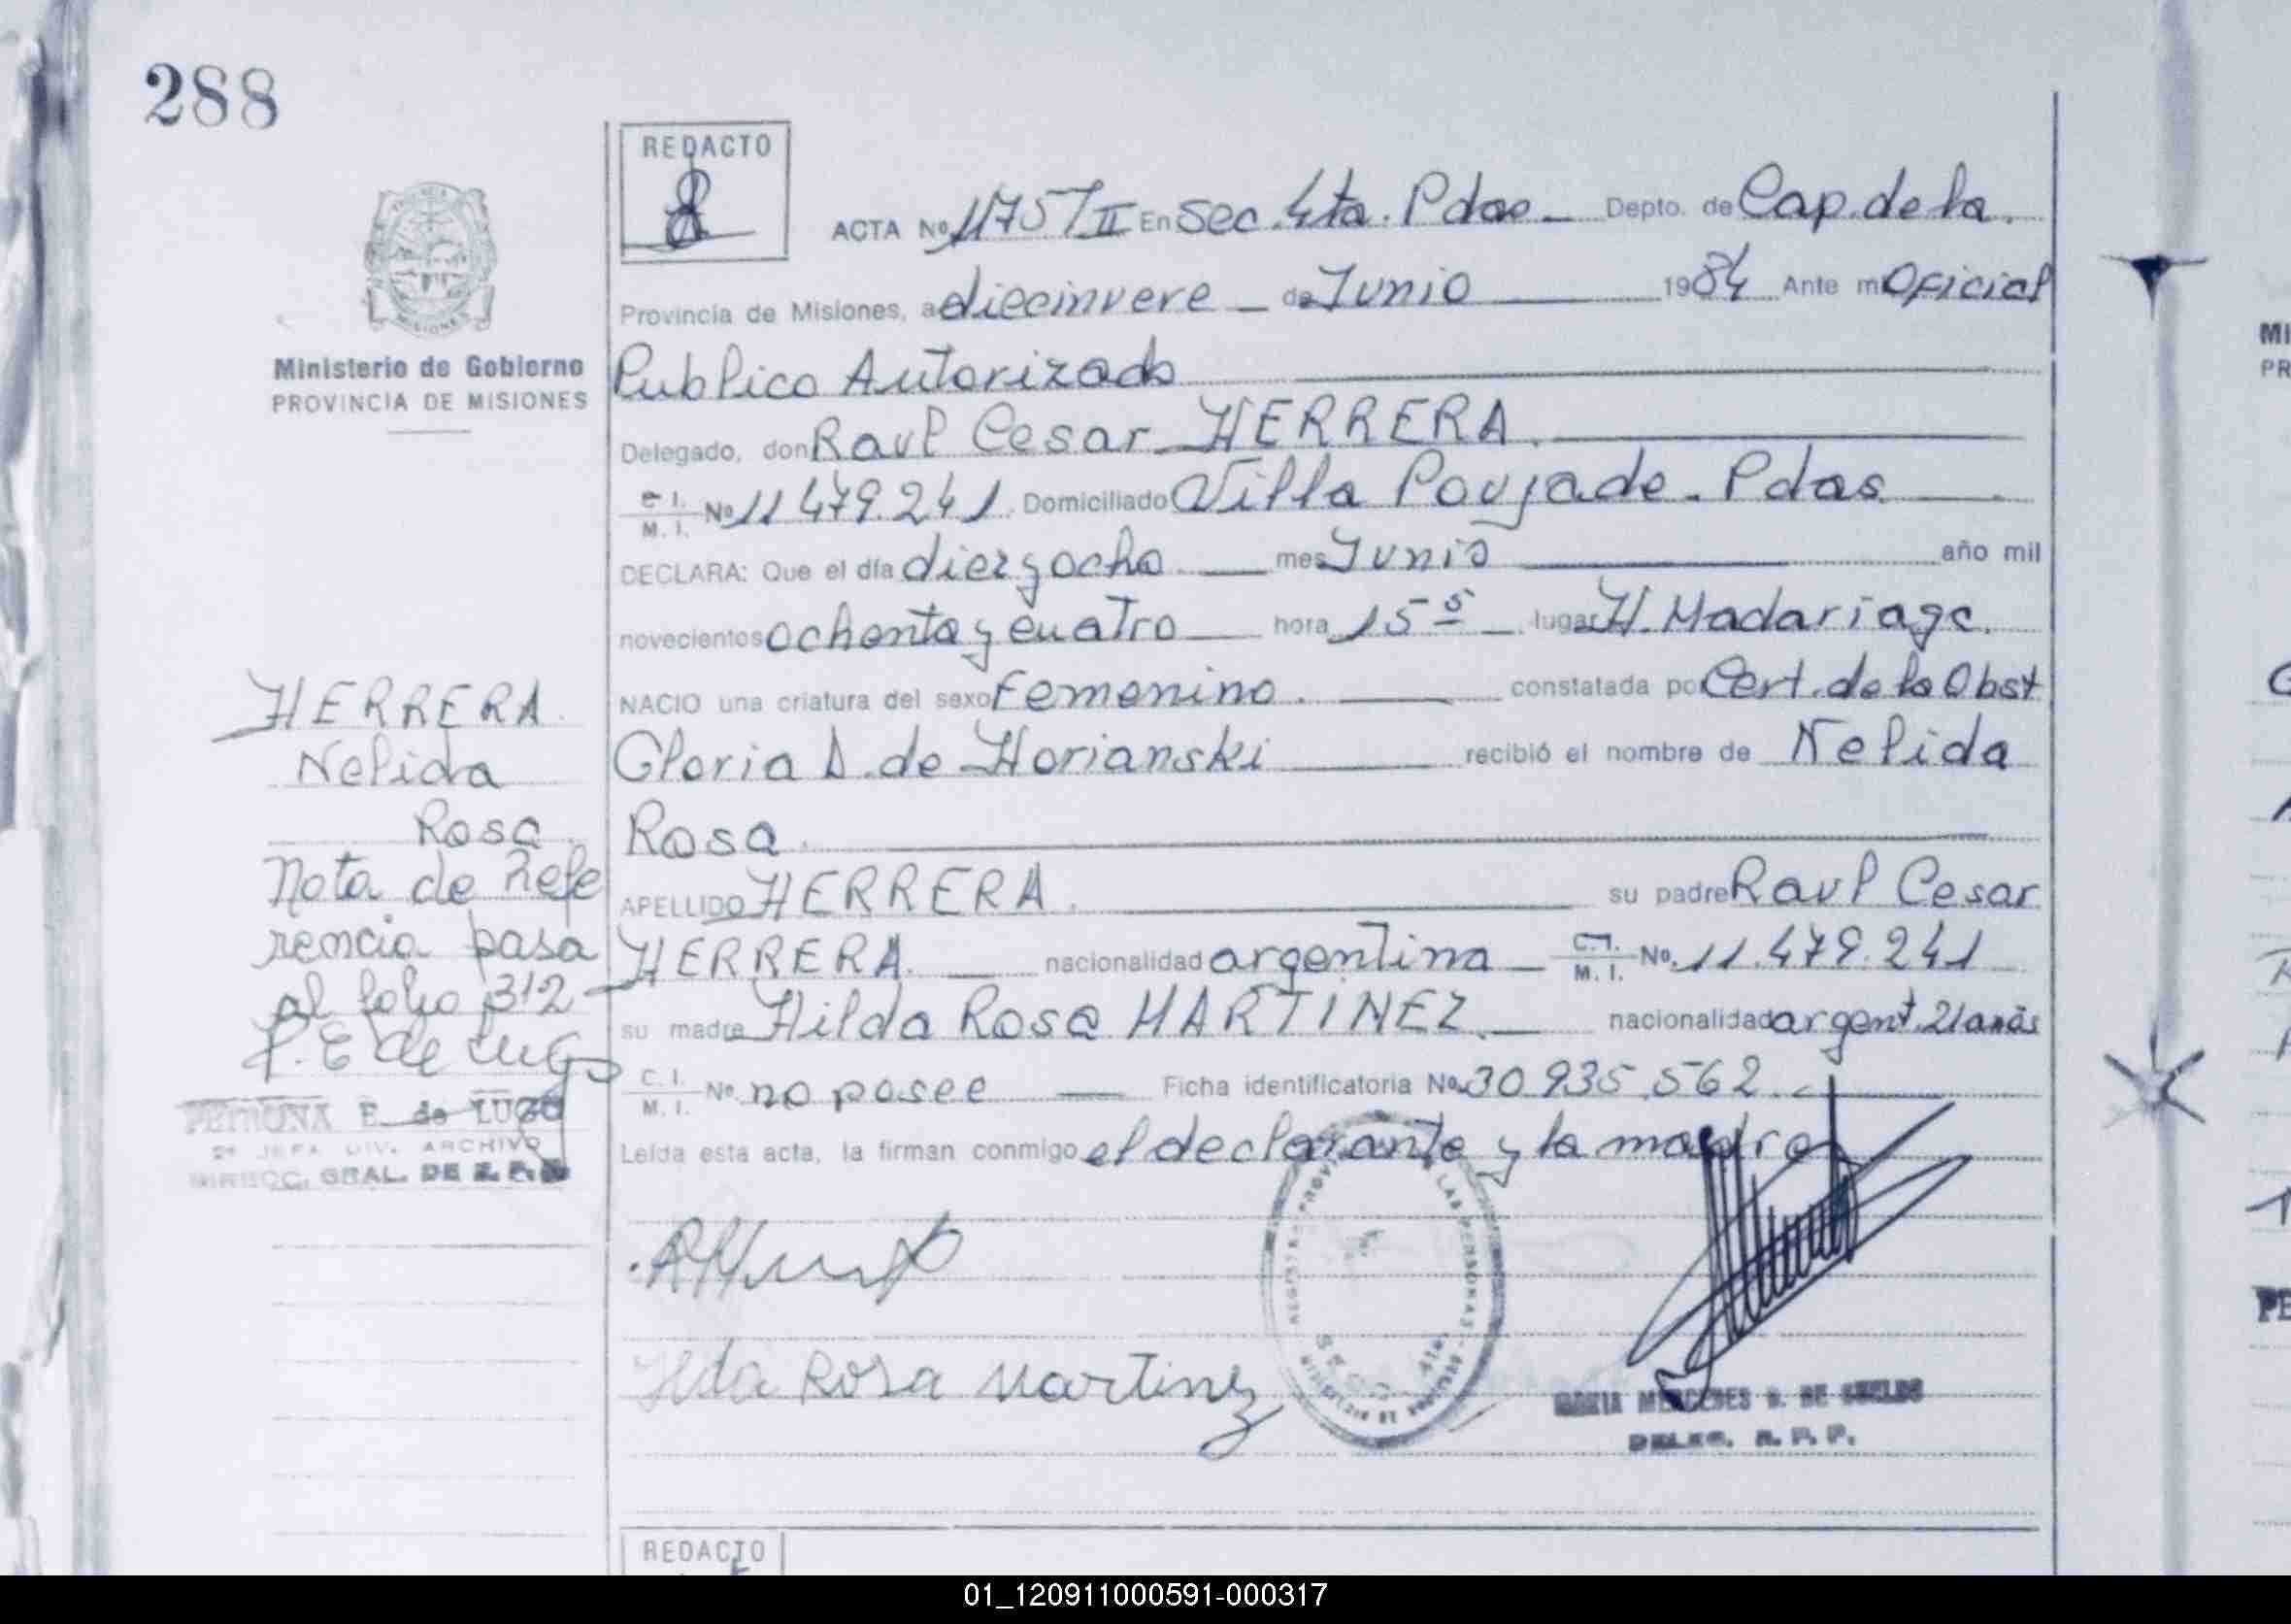 288
REDACTO
ACTA Nº 1175/II En Sec. 4ta. Pdas Depto. de Cap. de la.
Provincia de Misiones, a diecinvere de Junio 1984 Ante mi Oficial
Ministerio de Gobierno
PROVINCIA DE MISIONES
Publico Autorizado
Delegado, don Raul Cesar HERRERA.
C.I. M.I. Nº 11 479.241. Domiciliado Villa Poujade. Pdas.
DECLARA: Que el día diez y ocho mes Junio año mil
novecientos ochenta y cuatro hora 15 5 lugar H. Madariaga.
NACIO una criatura del sexo Femenino. constatada por Cert. de la Obst
Gloria D. de Horianski recibió el nombre de Nelida
Rosa.
APELLIDO HERRERA. su padre Raul Cesar
HERRERA. nacionalidad argentina C.I. M.I. No. 11.479.241
su madre Hilda Rosa MARTINEZ. nacionalidad argent. 21 años
C.I. M.I. Nº no posee Ficha identificatoria No. 30 935.562.
Leída esta acta, la firman conmigo el declarante y la madre
HERRERA
Nelida
Rosa
Nota de Refe
rencia pasa
al folio 312
P. E de Lugo
PETRONA E. de LUGO
2ª JEFA DIV. ARCHIVO
DIRECC. GRAL. DE
Ilda Rosa Martinez
MARIA MERCEDES B. DE
DELEG. R. P. P.
REDACTO
MI
PR
PE
01_120911000591-000317